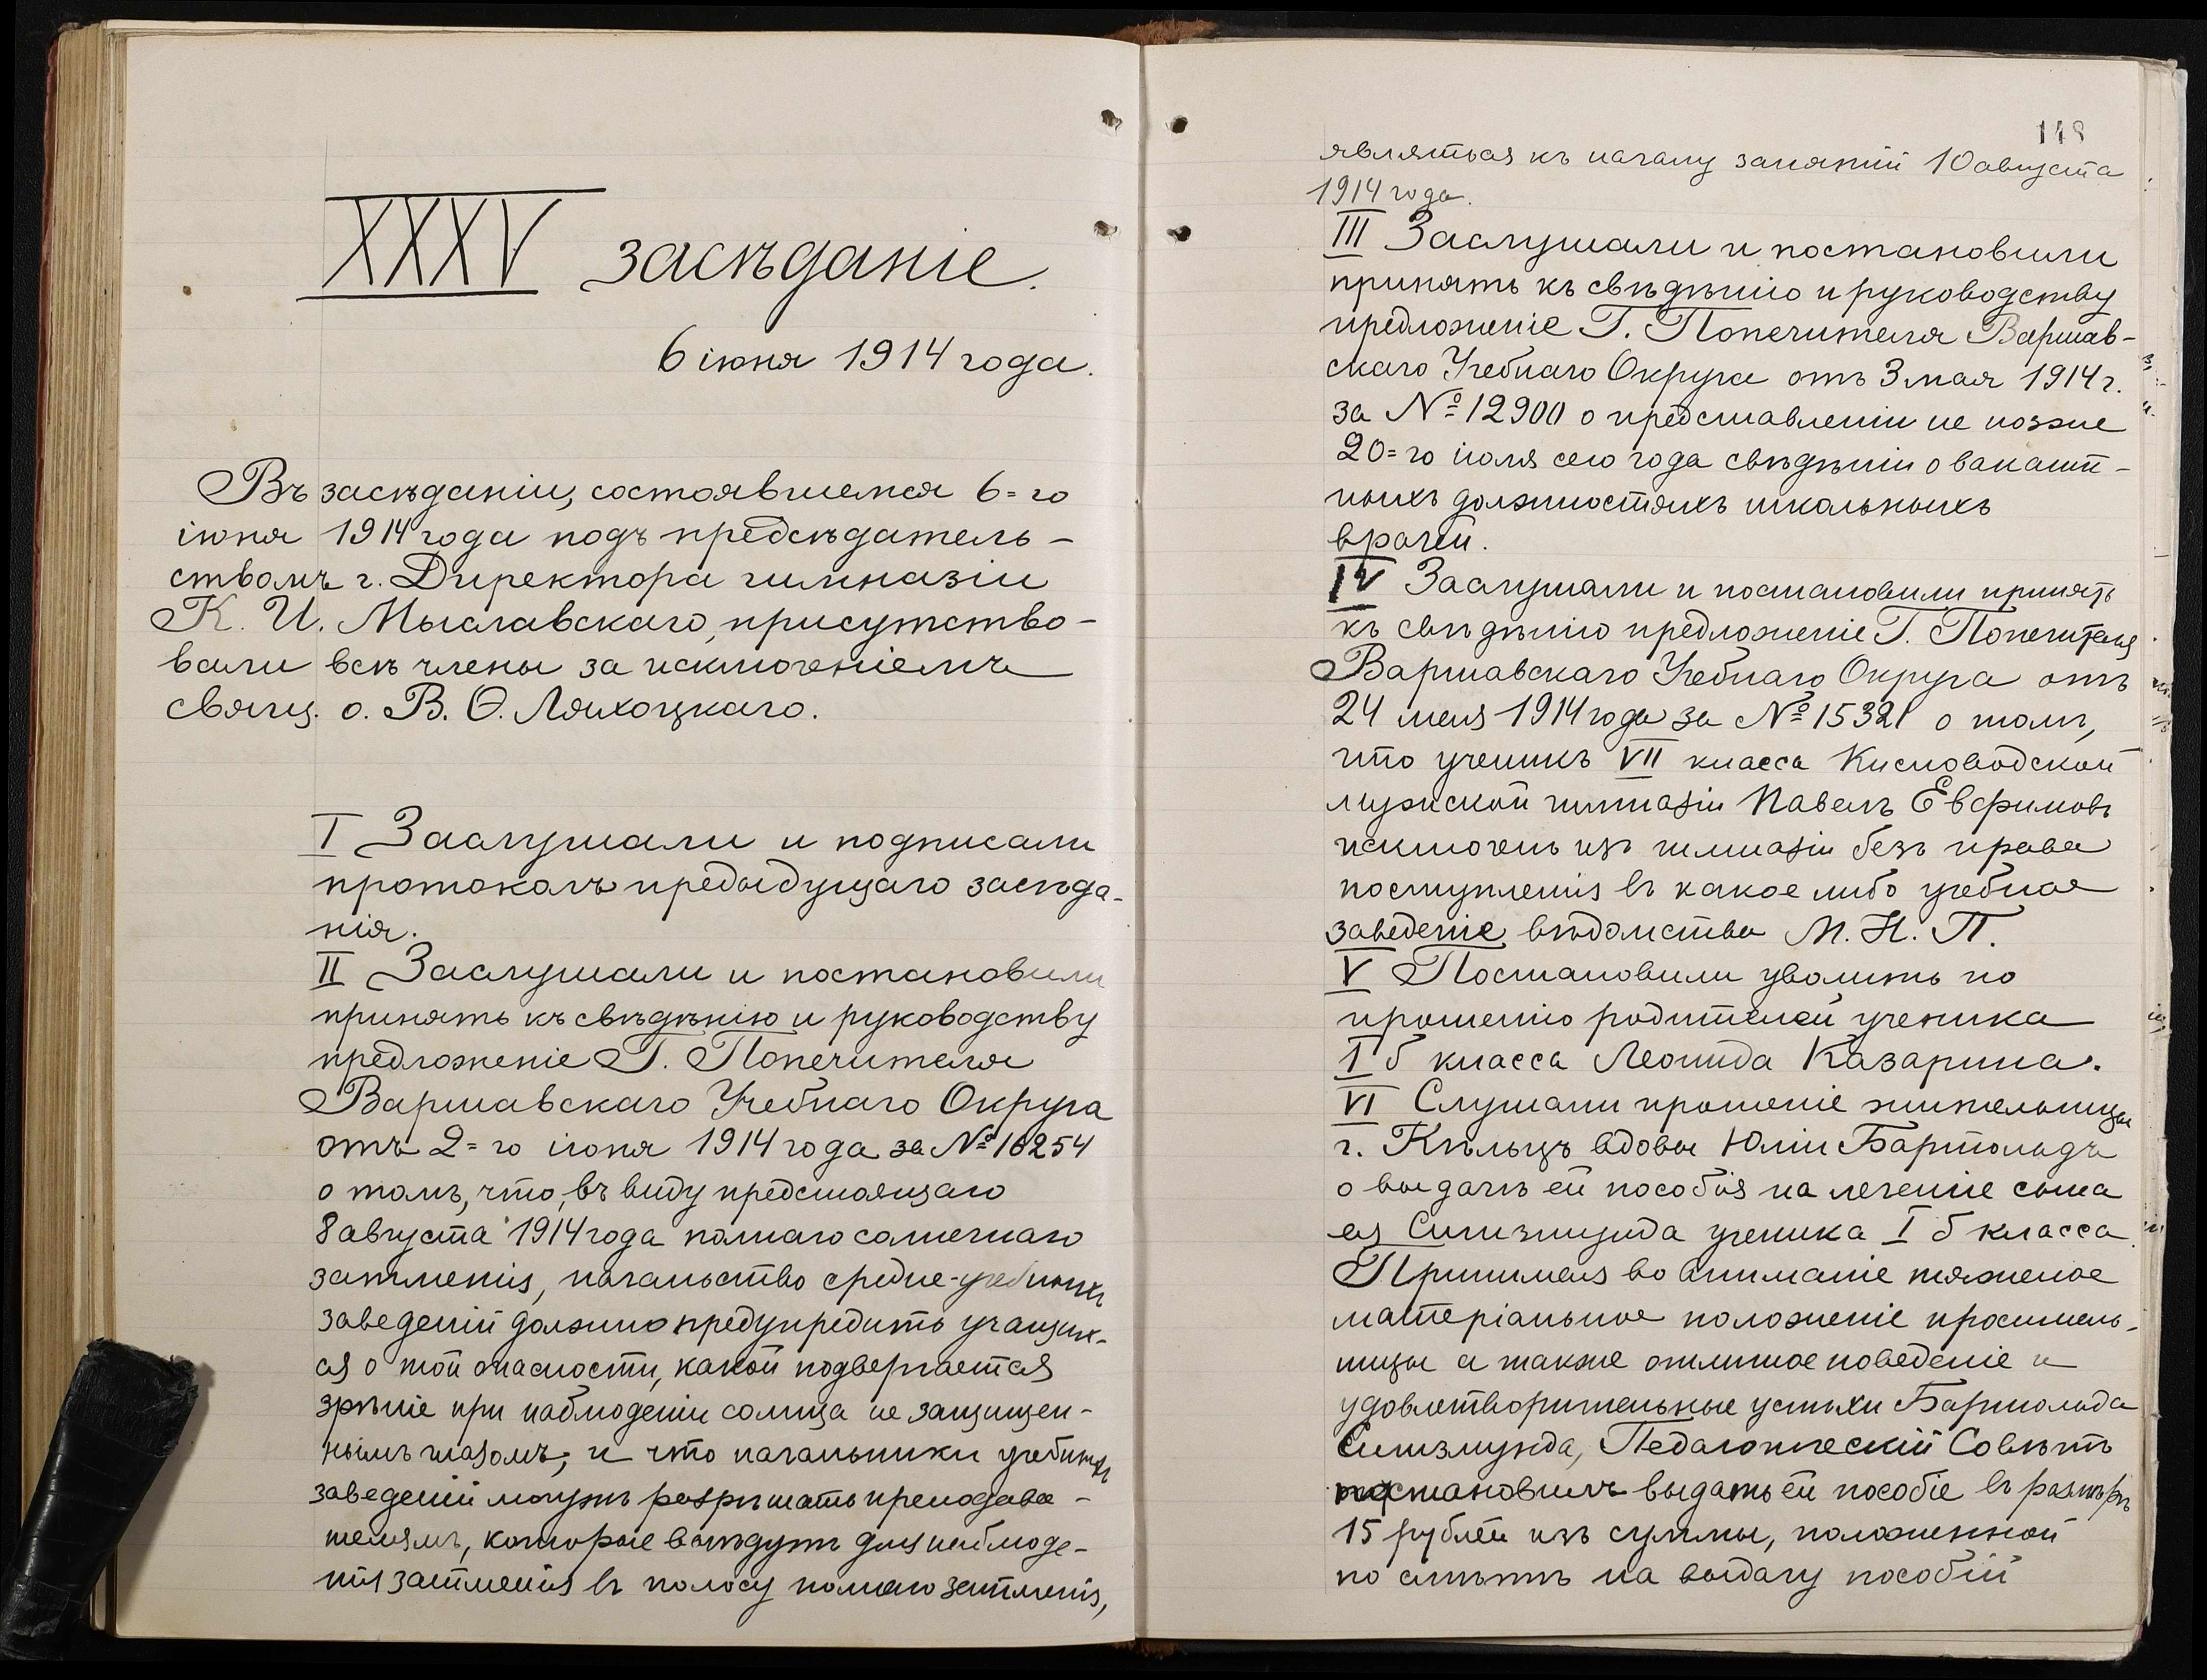 XXXV засѣданіе.
6 іюня 1914 года.
Въ засѣданіи, состоявшемся 6=го
іюня 1914 года подъ предсѣдатель-
ствомъ г. Директора гимназіи
К. И. Мыславскаго, присутство-
вали всѣ члены за исключеніемъ
свящ. о. В. Ѳ. Ляхоцкаго.
I Заслушали и подписали
протоколъ предыдущаго засѣда-
нія.
II Заслушали и постановили
принять къ свѣдѣнію и руководству
предложеніе Г. Попечителя
Варшавскаго Учебнаго Округа
отъ 2=го іюня 1914 года за № 16254
о томъ, что, въ виду предстоящаго
8 августа 1914 года полнаго солнечнаго
затменія, начальство средне-учебныхъ
заведеній должно предупредить учащих-
ся о той опасности, какой подвергается
зрѣніе при наблюденіи солнца не защищен-
нымъ глазомъ; и что начальники учебныхъ
заведеній могутъ разрѣшать преподава-
телямъ, которые выѣдутъ для наблюде-
нія затменія въ полосу полнаго затменія,
148
являться къ началу занятій 10 августа
1914 года.
III Заслушали и постановили
принять къ свѣдѣнію и руководству
предложеніе Г. Попечителя Варшав-
скаго Учебнаго Округа отъ 3 мая 1914 г.
за № 12900 о представленіи не позже
20=го іюля сего года свѣдѣніи о вакант-
ныхъ должностяхъ школьныхъ
врачей.
IV Заслушали и постановили принять
къ свѣдѣнію предложеніе Г. Попечителя
Варшавскаго Учебнаго Округа отъ
24 мая 1914 года за № 15321 о томъ,
что ученикъ VII класса Кисловодской
мужской гимназіи Павелъ Евфимовъ
исключенъ изъ гимназіи безъ права
поступленія въ какое либо учебное
заведеніе вѣдомства М. Н. П.
V Постановили уволить по
прошенію родителей ученика
I б класса Леонида Казарина.
VI Слушали прошеніе жительницы
г. Кѣльцъ вдовы Юліи Бартольдъ
о выдачѣ ей пособія на леченіе сына
ея Сигизмунда ученика I б класса.
Принимая во вниманіе тяжелое
матеріальное положеніе проситель-
ницы а также отличное поведеніе и
удовлетворительные успѣхи Бартольда
Сигизмунда, Педагогическій Совѣтъ
постановилъ выдать ей пособіе въ размѣрѣ
15 рублей изъ суммы, положенной
по смѣтѣ на выдачу пособій